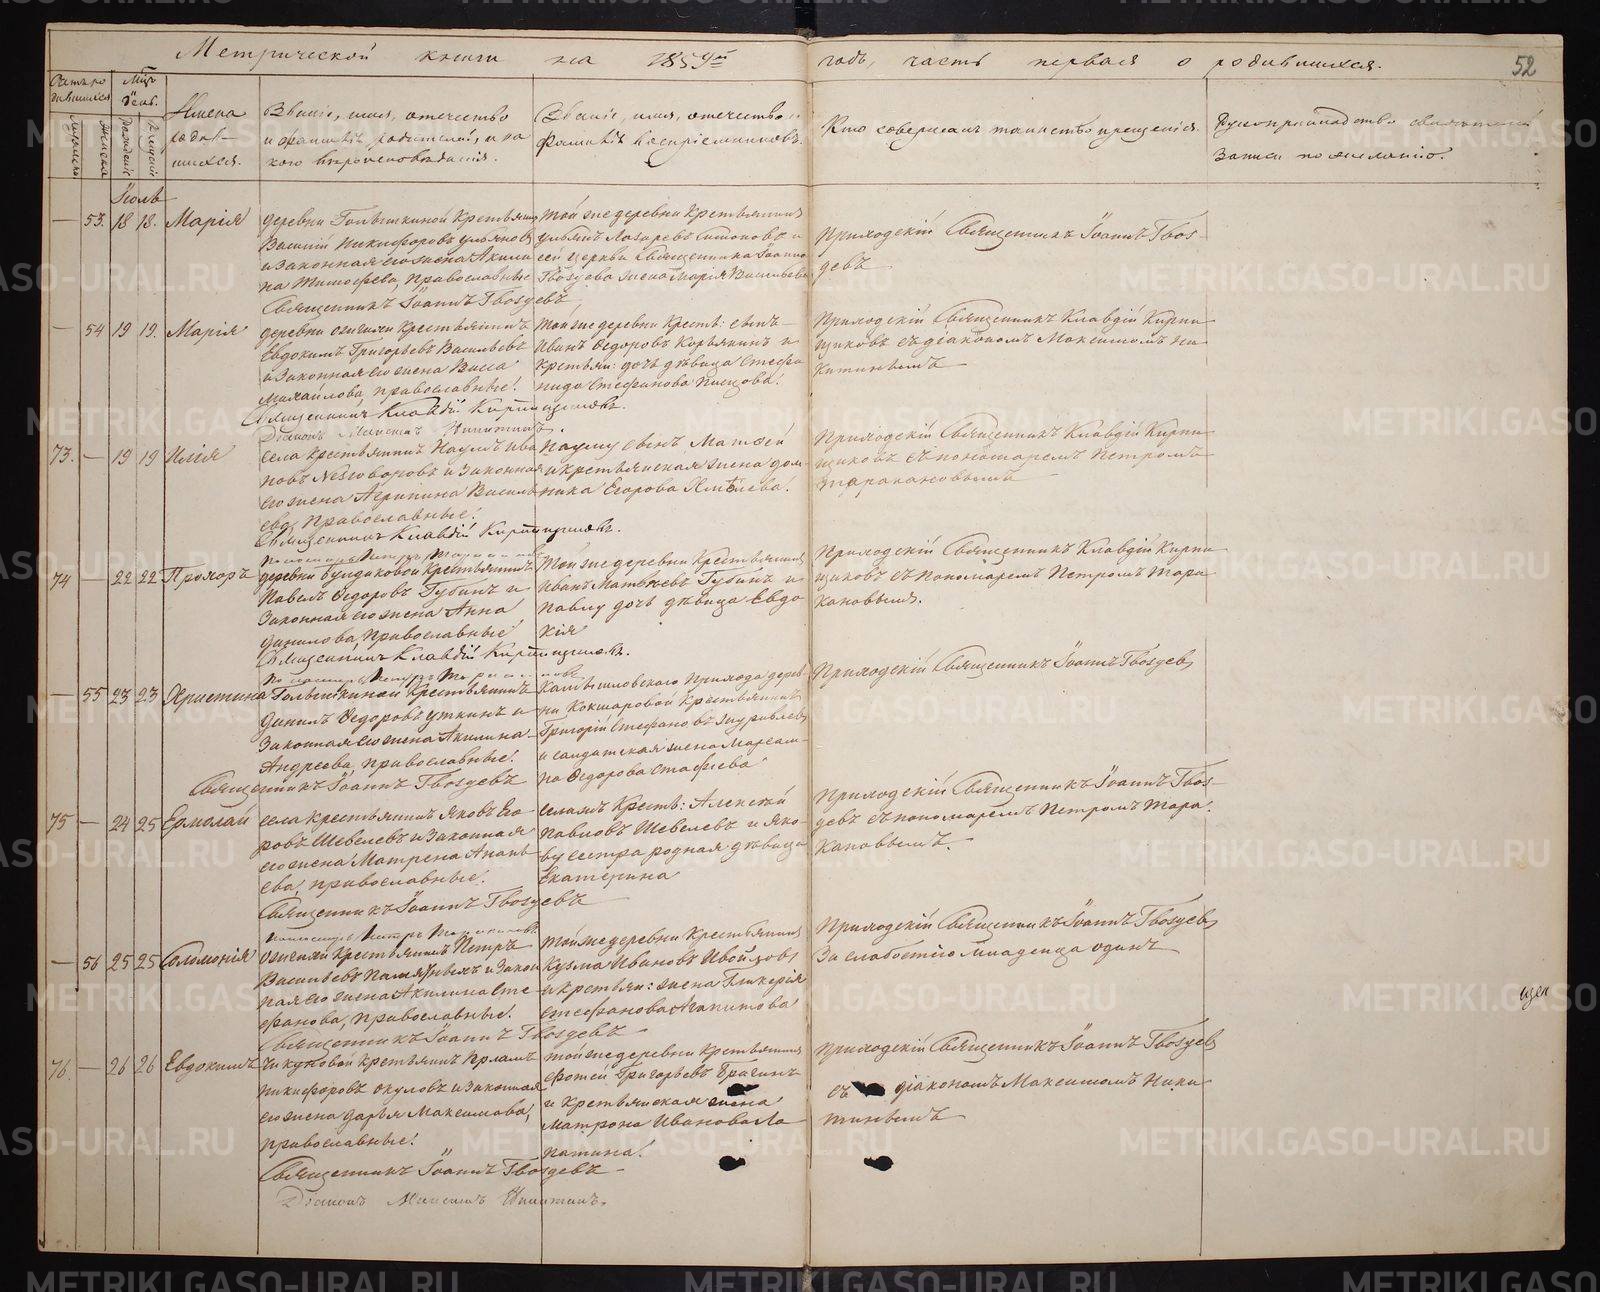 Метрической книги на 1859й годъ, часть первая о родившихся.
52
Счетъ родившихся
Мужеска
Женска
Мцъ и день
Рожденiя
Крещенiя
Имена родившихся.
Званiе, имя, отечество
и фамилiя родителей, и ка
кого вѣроисповѣданiя.
Званiе, имя, отечество и
фамилiя воспрiемниковъ.
Кто совершалъ таинство крещенiя.
Рукоприкладство свидѣтелей
записи по желанiю.
Iюль
53. 18 18. Марiя
деревни Голышкиной крестьянинъ
Василiй Никифоровъ Ульяновъ
и законная его жена Акили
на Тимофеева, Православные
Священникъ Iоаннъ Гвоздевъ
той же деревни крестьянинъ
Ульянъ Лазаревъ Симоновъ и
сей церкви Священника Iоанна
Гвоздева жена Марiя Васильева
Приходскiй Священникъ Iоаннъ Гвоз
девъ
54 19 19. Марiя
деревни крестьянинъ
Евдокимъ Григорьевъ Васильевъ
и законная его жена Васса
Михайлова, православные.
Священникъ Клавдiй Кирпищиковъ.
Дiаконъ Максимъ Никитинъ.
той же деревни крестъ: сынъ
Иванъ Ѳедоровъ Корѣлкинъ и
крестьян: дочь дѣвица Стефа
нида Стефанова Писцова.
Приходскiй Священникъ Клавдiй Кирпи
щиковъ съ дiакономъ Максимомъ Ни
китинымъ
73. 19 19 Илiя
села крестьянинъ Наумъ Ива
новъ и законная
его жена Агрипина Василь
ева, Православные.
Священникъ Клавдiй Кирпищиковъ.
Пономарь Петръ Таракановъ
Науму сынъ Матѳей
и крестьянская жена Дом
ника Егорова Хмѣлева.
Приходскiй Священникъ Клавдiй Кирпи
щиковъ съ пономаремъ Петромъ
Таракановымъ
74 22 22 Прохоръ
деревни Бундиковой крестьянинъ
Павелъ Ѳедоровъ Губинъ и
законная его жена Анна
Данилова, Православные
Священникъ Клавдiй Кирпищиковъ.
Пономарь Петръ Таракановъ
той же деревни крестьянинъ
Иванъ Матвѣевъ Губинъ и
Павлу дочь дѣвица Евдо
кiя
Приходскiй Священникъ Клавдiй Кирпи
щиковъ съ Пономаремъ Петромъ Тара
кановымъ.
55 23 23 Христина
Голышкиной крестьянинъ
Данилъ Ѳедоровъ Уткинъ и
законная его жена Акилина
Андреева, православные.
Священникъ Iоаннъ Гвоздевъ
Камышловскаго прихода дерев
ни Кокшаровой крестьянинъ
Григорiй Стефановъ Журавлевъ
и солдатская жена Мареам
на Ѳедорова Стафеева
Приходскiй Священникъ Iоаннъ Гвоздевъ
75 24 25 Ермолай
села крестьянинъ Яковъ Его
ровъ Шевелевъ и законная
его жена Матрена Анань
ева, православные.
Священникъ Iоаннъ Гвоздевъ
Пономарь Петръ Таракановъ
села крестъ: Алексѣй
Павловъ Шевелевъ и Яко
ву сестра родная дѣвица
Екатерина
Приходскiй Священникъ Iоаннъ Гвоз
девъ съ пономаремъ Петромъ Тара
кановымъ.
56 25 25 Соломонiя
крестьянинъ Петръ
Васильевъ и закон
ная его жена Акилина Сте
фанова, Православные.
Священникъ Iоаннъ Гвоздевъ
той же деревни крестьянинъ
Кузма Ивановъ Ивойловъ
и крестьян: жена Гликерiя
Стефанова Агапитова
Приходскiй Священникъ Iоаннъ Гвоздевъ
за слабостiю младенца одинъ
76. 26 26 Евдокимъ
Чикуновой крестьянинъ
Никифоровъ Окуловъ и законная
его жена Дарья Максимова,
православные.
Священникъ Iоаннъ Гвоздевъ
Дiаконъ Максимъ Никитинъ.
той же деревни крестьянинъ
Фотей Григорьевъ Брагинъ
и крестьянская жена
Матрона Иванова Ла
патина.
Приходскiй Священникъ Iоаннъ Гвоздевъ
съ дiакономъ Максимомъ Ники
тинымъ
METRIKI.GASO-URAL.RU